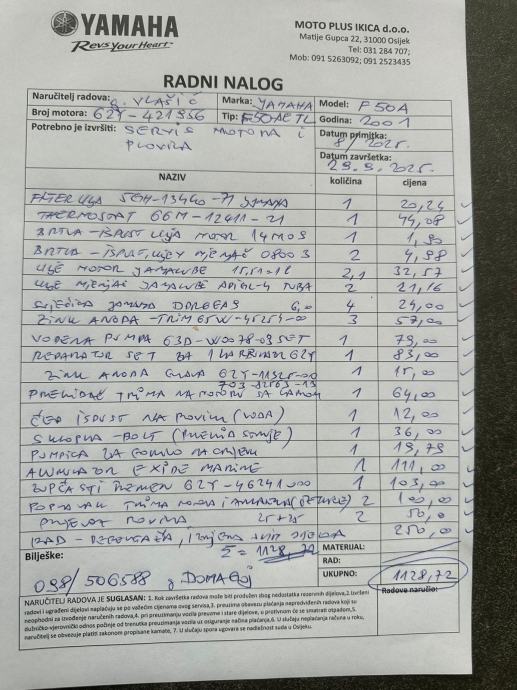 YAMAHA
Revs Your Heart
MOTO PLUS IKICA d.o.o.
Matije Gupca 22, 31000 Osijek
Tel: 031 284 707;
Mob: 091 5263092; 091 2523435
RADNI NALOG
Naručitelj radova: g. VLAŠIĆ Marka: YAMAHA Model: F 50A
Broj motora: 62Y-421956 Tip: F50AETL Godina: 2001
Potrebno je izvršiti: SERVIS MOTORA I PLOVILA
Datum primitka: 8/2025.
Datum završetka: 29.9.2025.
NAZIV količina cijena
FILTER ULJA 5GH-13440-71 YAMAHA 1 20,24
THERMOSTAT 66M-12411-21 1 44,08
BRTVA-ISPUST ULJA MOTOR 14MOS 1 1,90
BRTVA-ISPUST, ULJEV MJENJAČ 08003 2 4,98
ULJE MOTOR YAMALUBE 15,51=1L 2,1 32,57
ULJE MJENJAČ YAMALUBE TUBA 2 21,16
SVJEĆICA YAMAHA DPR6EAS 6,00 4 24,00
ZINK ANODA-TRIM 65W-45251-00 3 57,00
VODENA PUMPA 63D-W0078-03 SET 1 79,00
REPARATOR SET ZA 1 KARBURATOR 62Y 1 83,00
ZINK ANODA GLAVA 62Y-11325-00 1 15,00
703-82563-13
PREKIDAČ TRIMA NA MOTORU SA 1 64,00
ČEP ISPUST NA PLOVILU (VODA) 1 12,00
SKLOPKA-BOLT (PREKID STRUJE) 1 36,00
PUMPICA ZA GORIVO NA CRIJEVU 1 19,79
AKUMULATOR EXIDE MARINE 1 111,00
ZUPČASTI REMEN 62Y-46241-00 1 103,00
POPRAVAK TRIMA MOTORA I 2 100,00
PRIJEVOZ PLOVILA 25+25 2 50,0
RAD-DEMONTAŽA, IZMJENA SVIH DIJELOVA 250,00
Σ=1128,72
Bilješke:
098/506588 g. DOMAGOJ
MATERIJAL:
RAD:
UKUPNO: 1128,72
Radove naručio:
NARUČITELJ RADOVA JE SUGLASAN: 1. Rok završetka radova može biti produžen zbog nedostatka rezervnih dijelova,2.Izvršeni
radovi i ugrađeni dijelovi naplaćuju se po važećim cijenama ovog servisa,3. preuzima obavezu plaćanja nepredviđenih radova koji su
neophodni za izvođenje naručenih radova,4.pri preuzimanju vozila preuzme i stare dijelove, u protivnom će se smatrati otpadom,5.
dužničko-vjerovnički odnos počinje od trenutka preuzimanja vozila uz osiguranje načina plaćanja,6. U slučaju neplaćanja računa u roku,
naručitelj se obvezuje platiti zakonom propisane kamate, 7. U slučaju spora ugovara se nadležnost suda u Osijeku.